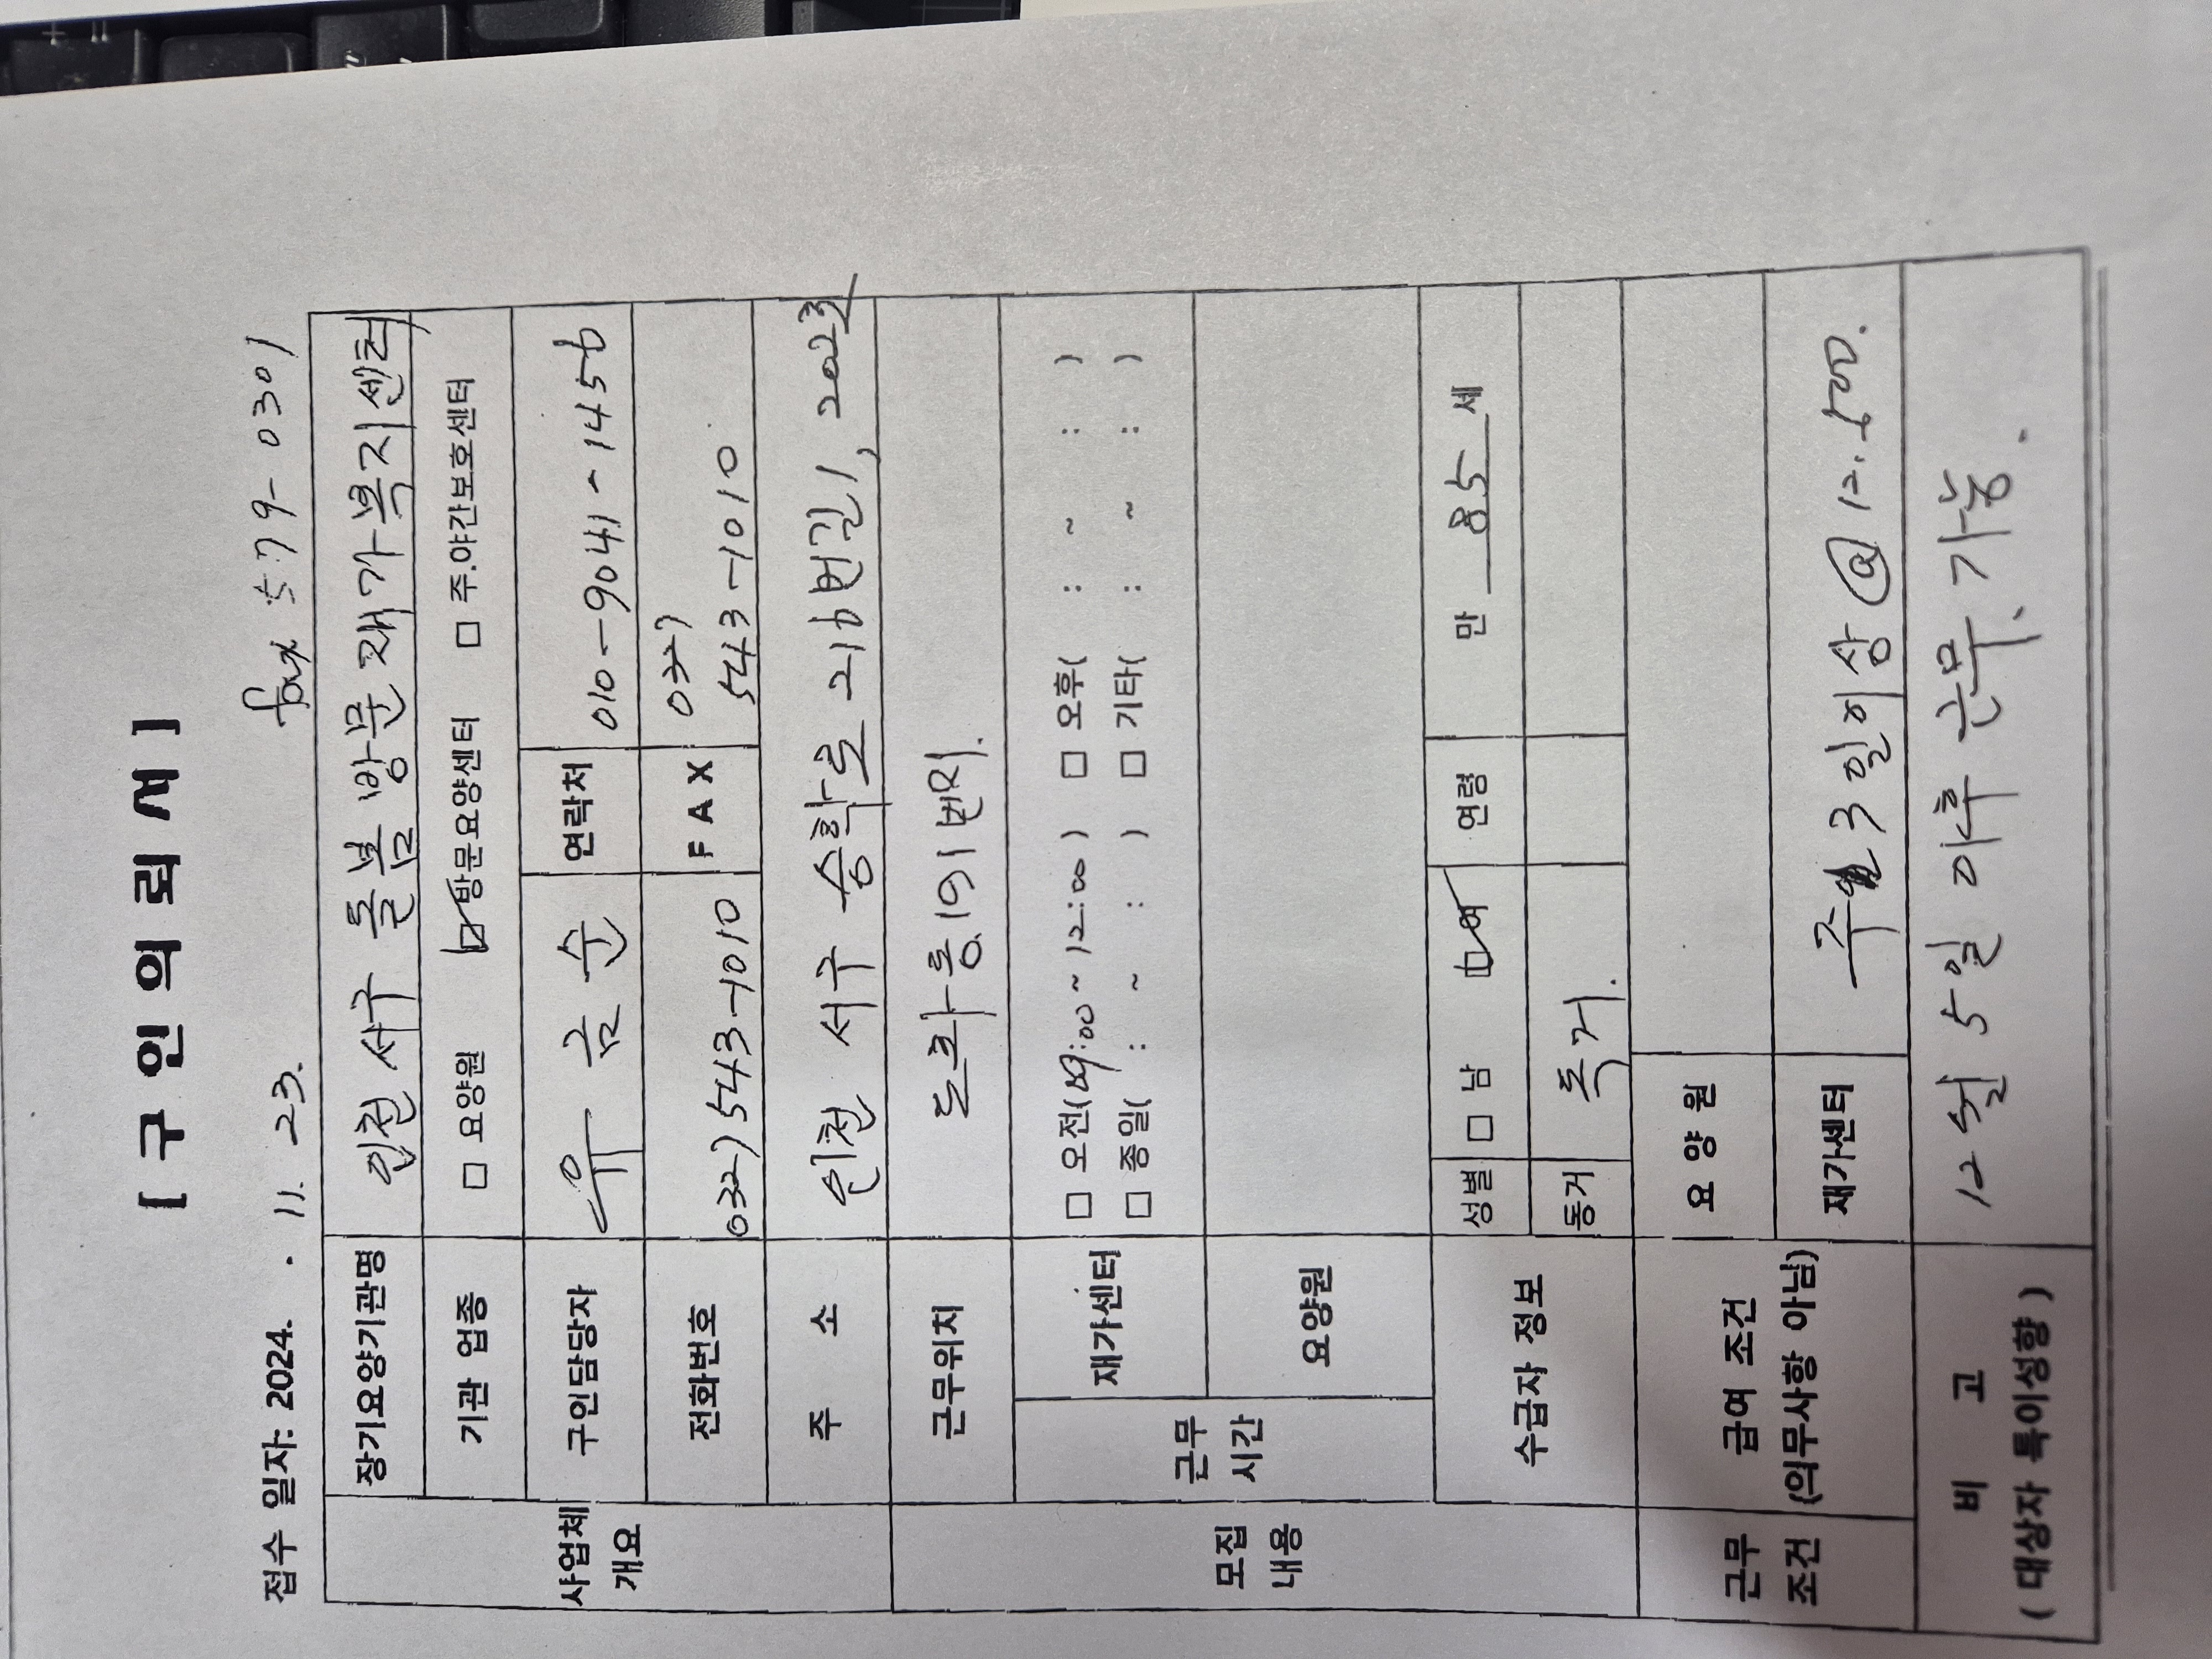 [ 구 인 의 뢰 서 ]
접수 일자: 2024. . 11. 23. fax 579-0301
사업체 개요
장기요양기관명 인천 서구 돌봄 방문재가복지센터
기관 업종 □ 요양원 ☑ 방문요양센터 □ 주.야간보호센터
구인담당자 유 금 순 연락처 010-9041-1456
전화번호 032) 543-1010 F A X 032) 543-1010
주 소 인천 서구 승학로 216번길 1, 202호
모집 내용
근무위치 도화동 191번지.
근무 시간
재가센터 □ 오전( 09:00 ~ 12:00 ) □ 오후( : ~ : )
□ 종일( : ~ : ) □ 기타( : ~ : )
요양원
수급자 정보 성별 □ 남 ☑ 여 연령 만 85 세
동거 독거.
근무 조건
급여 조건 (의무사항 아님)
요 양 원
재가센터 주 3일이상 @ 12.500.
비 고 ( 대상자 특이성향 ) 12월 5일 이후 근무 가능.